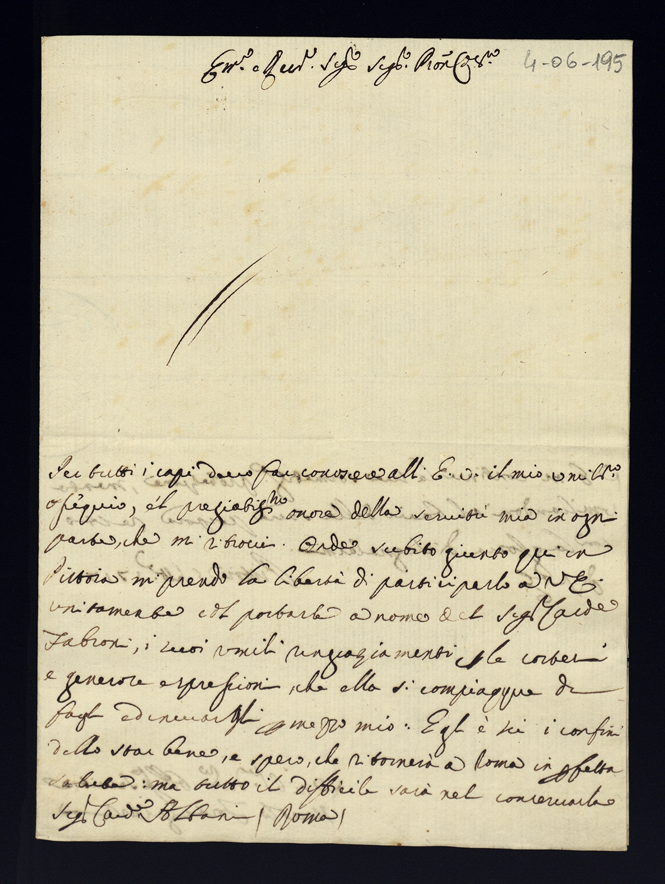 Em.o e Rev.o Sig.r Sig.r Pron Col.mo
4-06-195
Per tutti i capi devo far conoscere all' E. V. il mio umil.mo
ossequio, e'l pregiabiss.mo onore della servitù mia in ogni
parte, che mi ritrovi. Onde subito giunto qui in
Pistoia mi prendo la libertà di participarlo a V. E.
unitamente col portarle a nome del Sig.r Card.e
Fabroni, i suoi umili ringraziamenti p le cortesi
e generose espressioni, che ella si compiacque di
fargli ed inviargli p mezzo mio. Egli è sui i confini
dello star bene, e spero, che ritornerà a Roma in pfetta
salute: ma tutto il difficile sarà nel conservarla
Sig.r Card.e Albani / Roma /